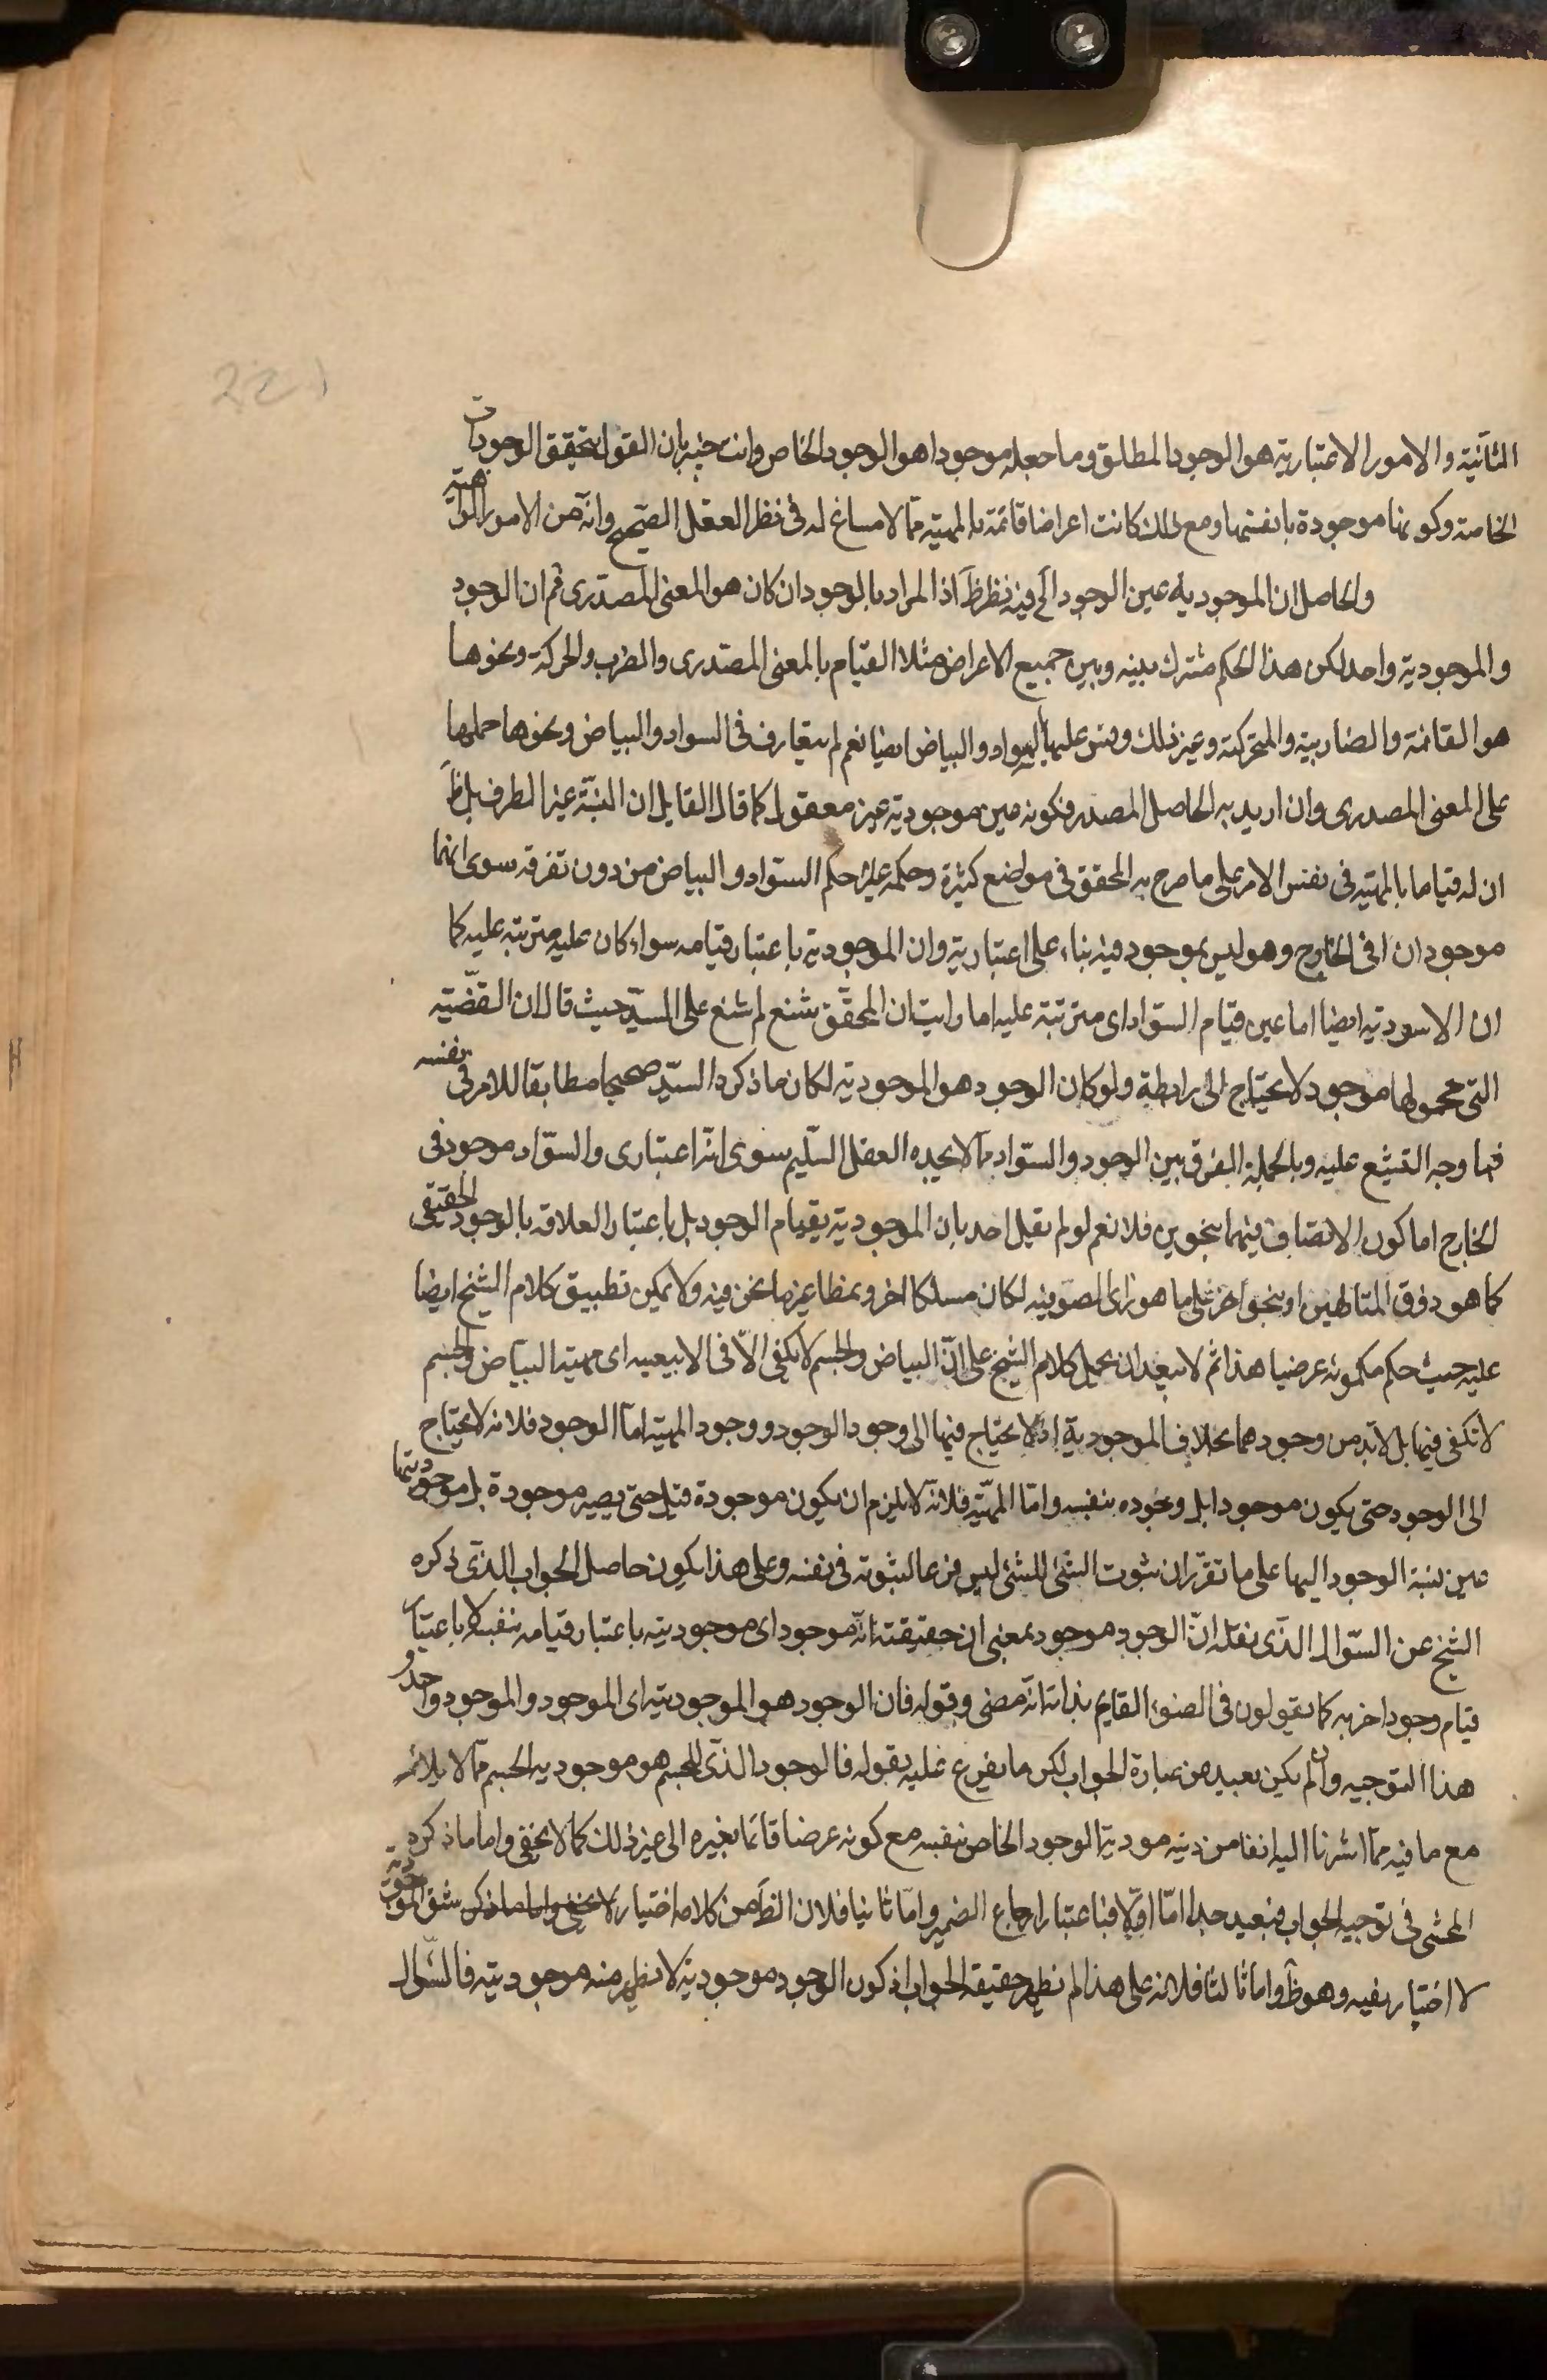 221
الثانية والامور الاعتبارية هو الوجود المطلق وما جعله موجودا هو الوجود الخاص وانت خبير بان القول بتحقيق الوجودات
الخاصة وكونها موجودة بانفسها ومع ذلك كانت اعراضا قائمة بالمهية مما لا مساغ له فى نظر العقل الصحيح وانه من الامور الواهية
والحاصل ان الموجودية عين الوجود الخ فيه نظر ظ اذ المراد بالوجود ان كان هو المعنى المصدرى فم ان الوجود
والموجودية واحد لكن هذا الحكم مشترك بينه وبين جميع الاعراض مثلا القيام بالمعنى المصدرى والضرب والحركة ونحوها
هو القائمة والضاربية والمتحركية وغير ذلك وقس عليها السواد والبياض ايضا نعم لم يتعارف فى السواد والبياض ونحوها حملها
على المعنى المصدرى وان اريد به الحاصل المصدر فكونه عين موجودية غير معقول كما قال القايل ان النسبة غير الطرف بل ظ
ان له قياما بالمهية فى نفس الامر على ما صرح به المحقق فى مواضع كثيرة وحكمه عليه حكم السواد والبياض من دون تفرقه سوى انهما
موجودان فى الخارج وهو ليس بموجود فيه بناء على اعتبارية وان الموجودية باعتبار قيامه سواء كان عليه مترتبه عليه كما
ان الاسودية ايضا اما عين قيام السواد اى مترتبة عليه اما رايت ان المحقق شنع لم شنع على السيد حيث قال ان القضيه
التى محمولها موجود لا يحتاج الى رابطة ولو كان الوجود هو الموجودية لكان ما ذكره السيد صحيحا مطابقا للامر فى نفسه
فما وجه التشيع عليه وبالجملة الفرق بين الوجود والسواد مما لا يجده العقل السليم سوى انه اعتبارى والسواد موجود فى
الخارج اما كون الاتصاف فيهما بنحوين فلا نعم لو لم يقيل احد بان الموجودية بقيام الوجود بل باعتبار العلاقه بالوجود الحقيقى
كما هو ذوق المتالهين او بنحو اخر على ما هو راى الصوفيه لكان مسلكا اخر ونمطا غير ما نحن فيه ولا يمكن تطبيق كلام الشيخ ايضا
عليه حيث حكم بكونه عرضيا هذا ثم لا يبعد ان يحمل كلام الشيخ على ان البياض والجسم لا يكفى الا فى الابيضيه اى مهية البياض والجسم
لا تكفى فيها بل لابد من وجودهما بخلاف الموجودية اذ لا يحتاج فيها الى وجود الوجود ووجود المهية اما الوجود فلانه لا يحتاج
الى الوجود حتى يكون موجودا بل وجوده بنفسه واما المهية فلانه لا يلزم ان يكون موجودة قبل حتى يصير موجودة بل موجوديتها
عين نسبة الوجود اليها على ما تقرر ان ثبوت الشئ للشئ ليس فرعا لثبوته فى نفسه وعلى هذا يكون حاصل الجواب الذى ذكره
الشيخ عن السؤال الذى نقله ان الوجود موجود بمعنى ان حقيقته انه موجود اى موجوديته باعتبار قيامه بنفسه لا باعتبار
قيام وجود اخر به كما يقولون فى الضوء القايم بذاته انه مضئ وقوله فان الوجود هو الموجودية اى الموجود والموجود واحد و
هذا التوجيه وان لم يكن بعيد من عبارة الجواب لكن ما يفرع عليه بقوله فالوجود الذى للجسم هو موجودية الجسم مما لا يلائمه
مع ما فيه مما اشرنا اليه انفا من موديه الوجود الخاص بنفسه مع كونه عرضا قائما بغيره الى غير ذلك كما لا يخفى واما ما ذكره
المحشى فى توجيه الجواب فبعيد جدا اما اولا فباعتبار ارجاع الضمير واما ثانيا فلان الظ من كلامه اختيار لا يخفى واما ما ذكر شق الموجودية
لا اختيار نفيه وهو ظ واما ثالثا فلانه على هذا لم يظهر حقيقة الجواب اذ كون الوجود موجودية لا يظهر منه موجوديته فالسؤال